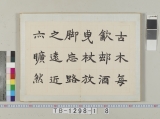 古木每
歆邮酒
曳杖放
脚忘路
之遠近
六曠然
TB-1298-(1) 8